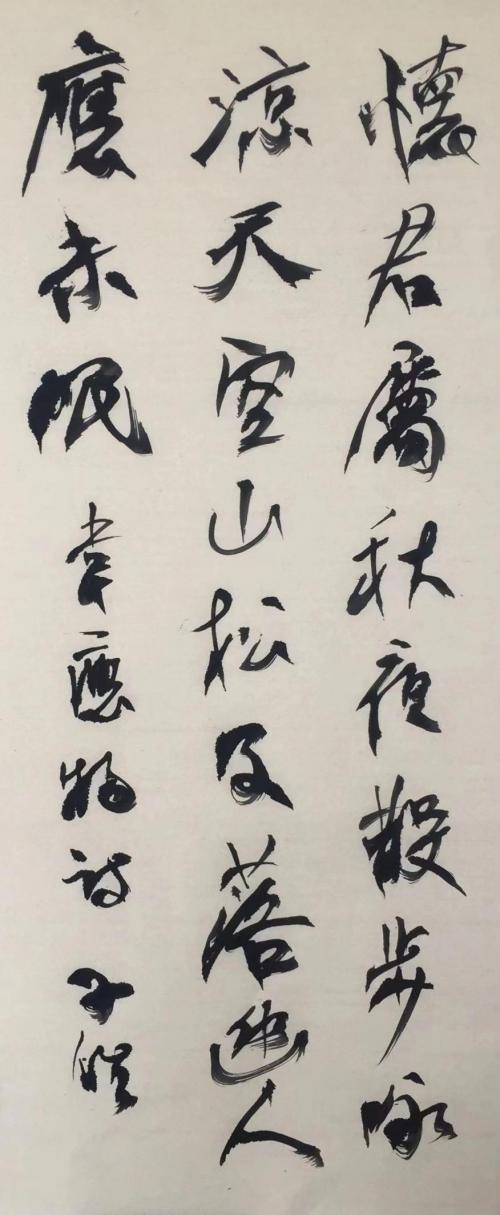 懷君屬秋夜散步咏
涼天空山松子落幽人
應未眠 韋應物詩 子